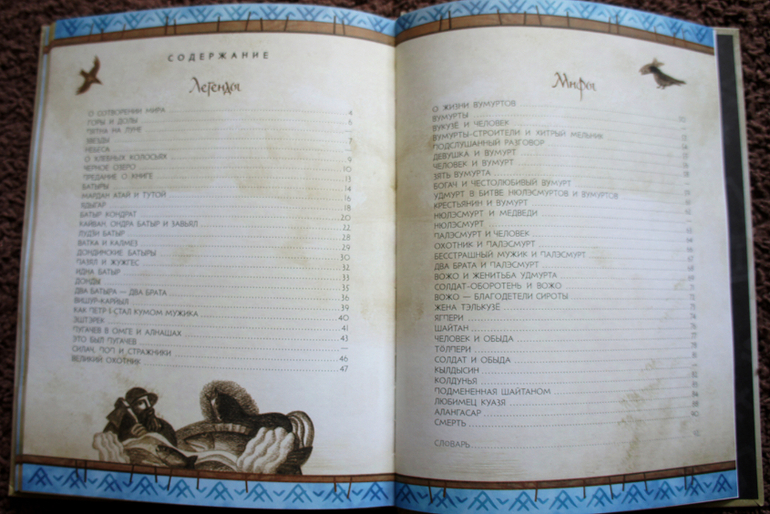 СОДЕРЖАНИЕ
Легенды
О СОТВОРЕНИИ МИРА 4
ГОРЫ И ДОЛЫ 6
ПЯТНА НА ЛУНЕ —
ЗВЕЗДЫ 7
НЕБЕСА —
О ХЛЕБНЫХ КОЛОСЬЯХ 9
ЧЕРНОЕ ОЗЕРО 10
ПРЕДАНИЕ О КНИГЕ 11
БАТЫРЫ 14
МАРДАН АТАЙ И ТУТОЙ 16
ЯДЫГАР 18
БАТЫР КОНДРАТ 20
КАЙВАН, ОНДРА БАТЫР И ЗАВЬЯЛ 22
ЛУДЗИ БАТЫР 28
ВАТКА И КАЛМЕЗ 29
ДОНДИНСКИЕ БАТЫРЫ 30
ПАЗЯЛ И ЖУЖГЕС 32
ИДНА БАТЫР 33
ДОНДЫ 35
ДВА БАТЫРА — ДВА БРАТА 36
ВИШУР-КАРЙЫЛ 39
КАК ПЕТР I СТАЛ КУМОМ МУЖИКА 40
ЭШТЭРЕК 41
ПУГАЧЕВ В ОМГЕ И АЛНАШАХ 43
ЭТО БЫЛ ПУГАЧЕВ —
СИЛАН, ПОП И СТРАЖНИКИ 46
ВЕЛИКИЙ ОХОТНИК 47
Мифы
О ЖИЗНИ ВУМУРТОВ
ВУМУРТЫ
ВУКУЗЁ И ЧЕЛОВЕК
ВУМУРТЫ-СТРОИТЕЛИ И ХИТРЫЙ МЕЛЬНИК
ПОДСЛУШАННЫЙ РАЗГОВОР
ДЕВУШКА И ВУМУРТ
ЧЕЛОВЕК И ВУМУРТ
ЗЯТЬ ВУМУРТА
БОГАЧ И ЧЕСТОЛЮБИВЫЙ ВУМУРТ
УДМУРТ В БИТВЕ НЮЛЭСМУРТОВ И ВУМУРТОВ
КРЕСТЬЯНИН И ВУМУРТ
НЮЛЭСМУРТ И МЕДВЕДИ
НЮЛЭСМУРТ
ПАЛЭСМУРТ И ЧЕЛОВЕК
ОХОТНИК И ПАЛЭСМУРТ
БЕССТРАШНЫЙ МУЖИК И ПАЛЭСМУРТ
ДВА БРАТА И ПАЛЭСМУРТ
ВОЖО И ЖЕНИТЬБА УДМУРТА
СОЛДАТ-ОБОРОТЕНЬ И ВОЖО
ВОЖО — БЛАГОДЕТЕЛИ СИРОТЫ
ЖЕНА ТЭЛЬКУЗЁ
ЯГПЕРИ
ШАЙТАН
ЧЕЛОВЕК И ОБЫДА
ТОЛПЕРИ
СОЛДАТ И ОБЫДА
КЫЛДЫСИН
КОЛДУНЬЯ
ПОДМЕНЕННАЯ ШАЙТАНОМ
ЛЮБИМЕЦ КУАЗЯ
АЛАНГАСАР 90
СМЕРТЬ
СЛОВАРЬ